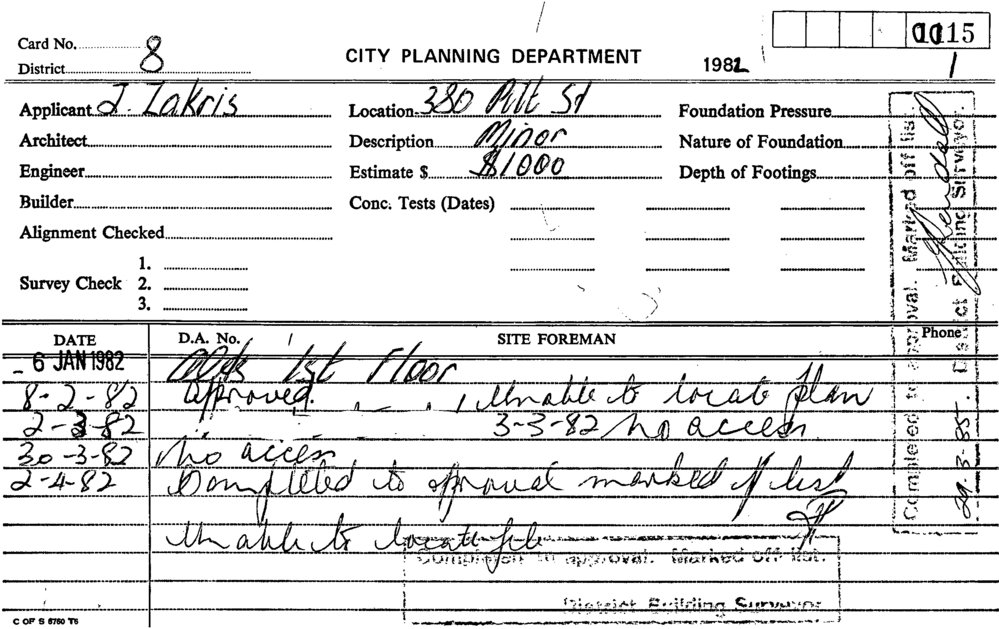 Card No.
District 8
CITY PLANNING DEPARTMENT
1982
0015
1
Applicant J. Zakris
Location 380 Pitt St
Foundation Pressure
Architect
Description Minor
Nature of Foundation
Engineer
Estimate $ $1000
Depth of Footings
Builder
Conc. Tests (Dates)
Alignment Checked
Survey Check 1.
2.
3.
DATE
D.A. No.
SITE FOREMAN
Phone
- 6 JAN 1982 1st Floor
8-2-82 Approved. Unable to locate plan
2-3-82 3-3-82 No access
30-3-82 No access
2-4-82 Completed to approval marked off list
Unable to locate file
Completed to approval. Marked off list.
District Building Surveyor
Completed to approval. Marked off list.
29-3-85. District Building Surveyor.
C OF S 5760 T6